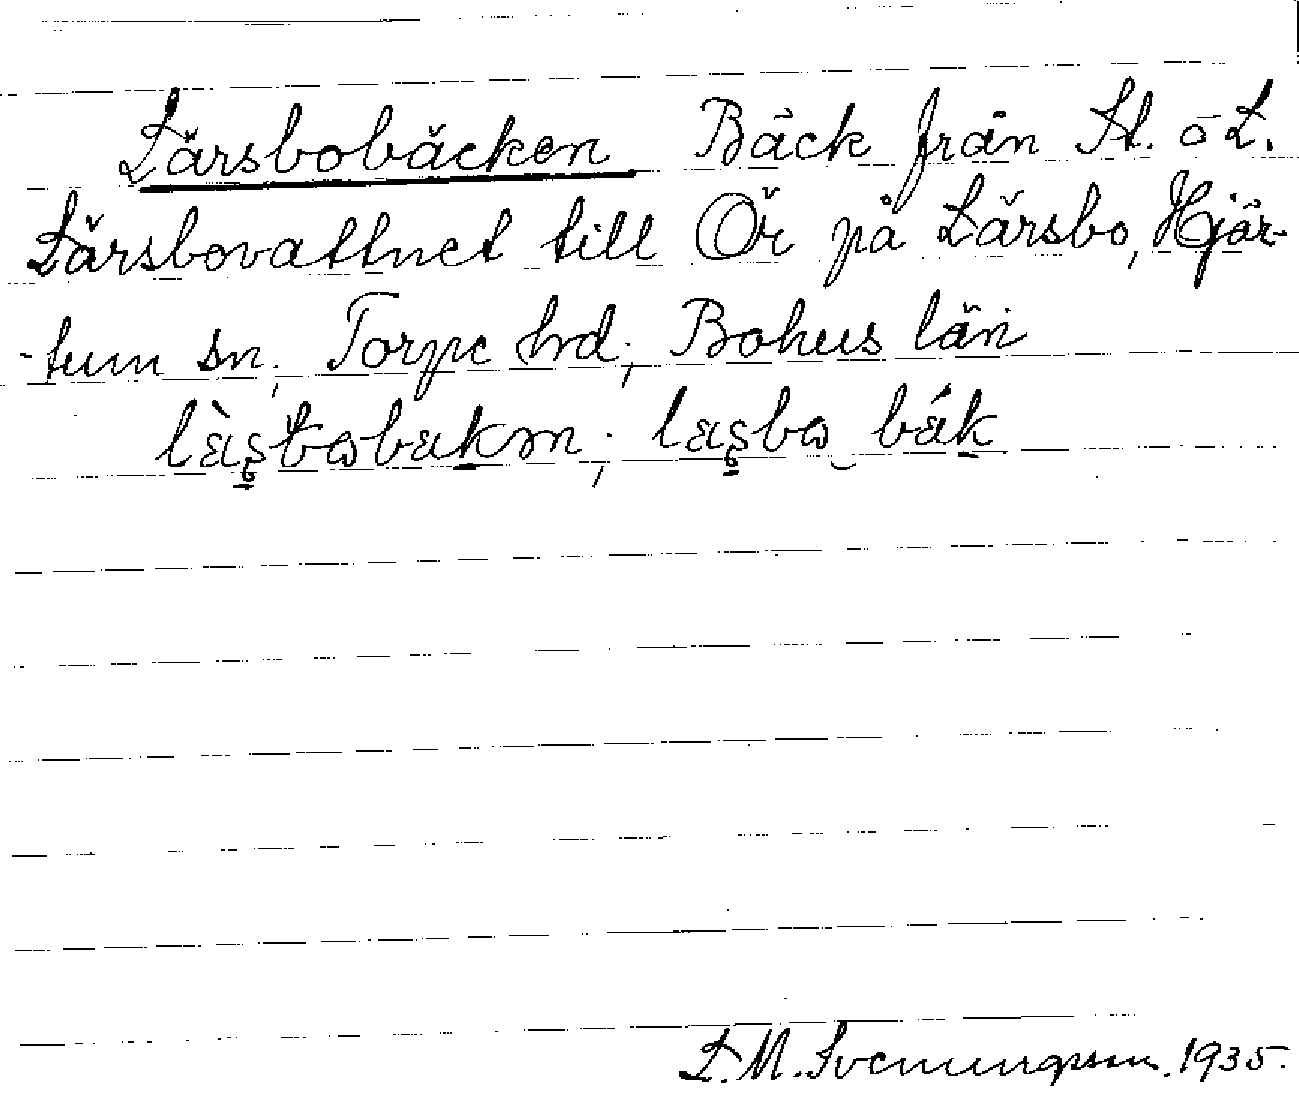 Lärsbobäcken Bäck från St. o L.
Lärsbovattnet till Ör på Lärsbo, Hjär-
-tum sn, Torpe hrd, Bohus län
L. M. Svenungsson. 1935.